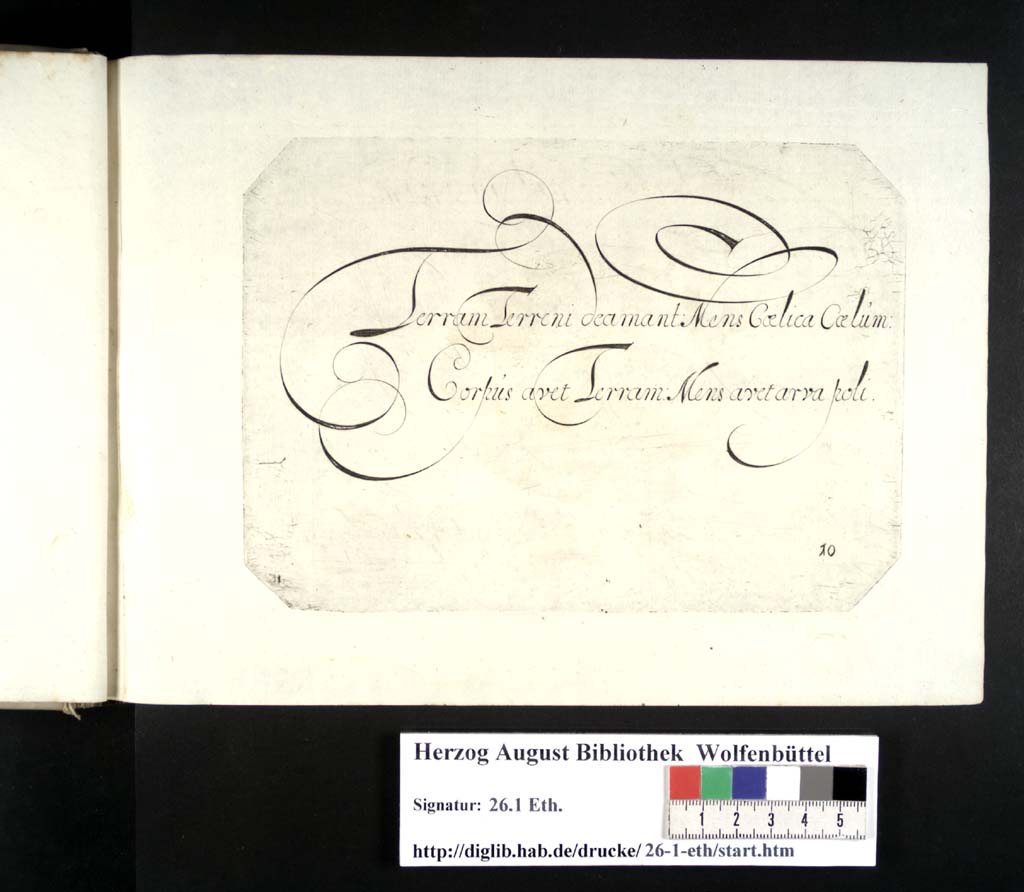 Terram Terreni deamant: Mens Cœlica Cœlúm:
Corpús avet Terram: Mens avet arva poli.
10
Herzog August Bibliothek Wolfenbüttel
Signatur: 26.1 Eth.
1 2 3 4 5
http://diglib.hab.de/drucke/26-1-eth/start.htm